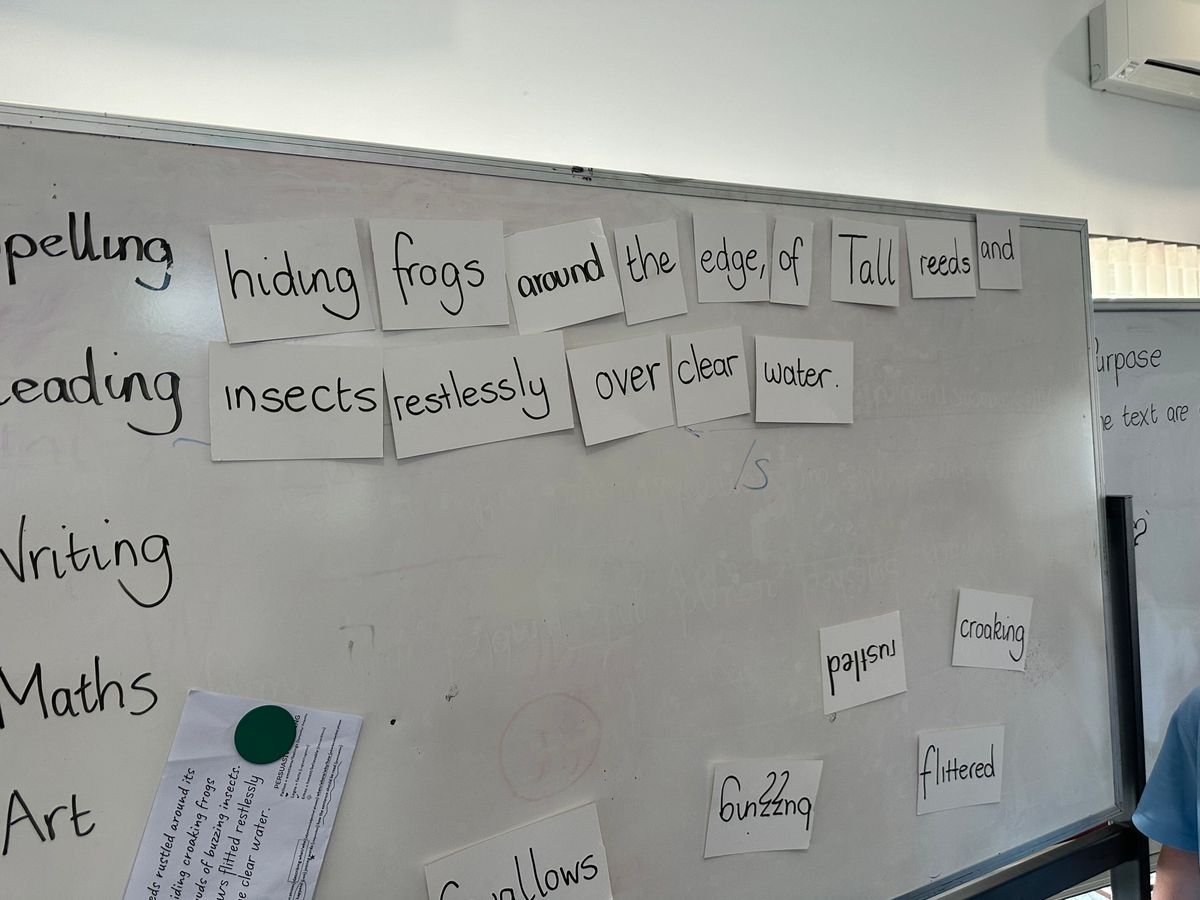 pelling
hiding frogs around the edge, of Tall reeds and
eading
insects restlessly over clear water.
/s
Writing
Maths
Art
rustled
croaking
buzzing
flittered
Swallows
eds rustled around its
iding croaking frogs
uds of buzzing insects.
ws flitted restlessly
e clear water.
urpose
e text are
?